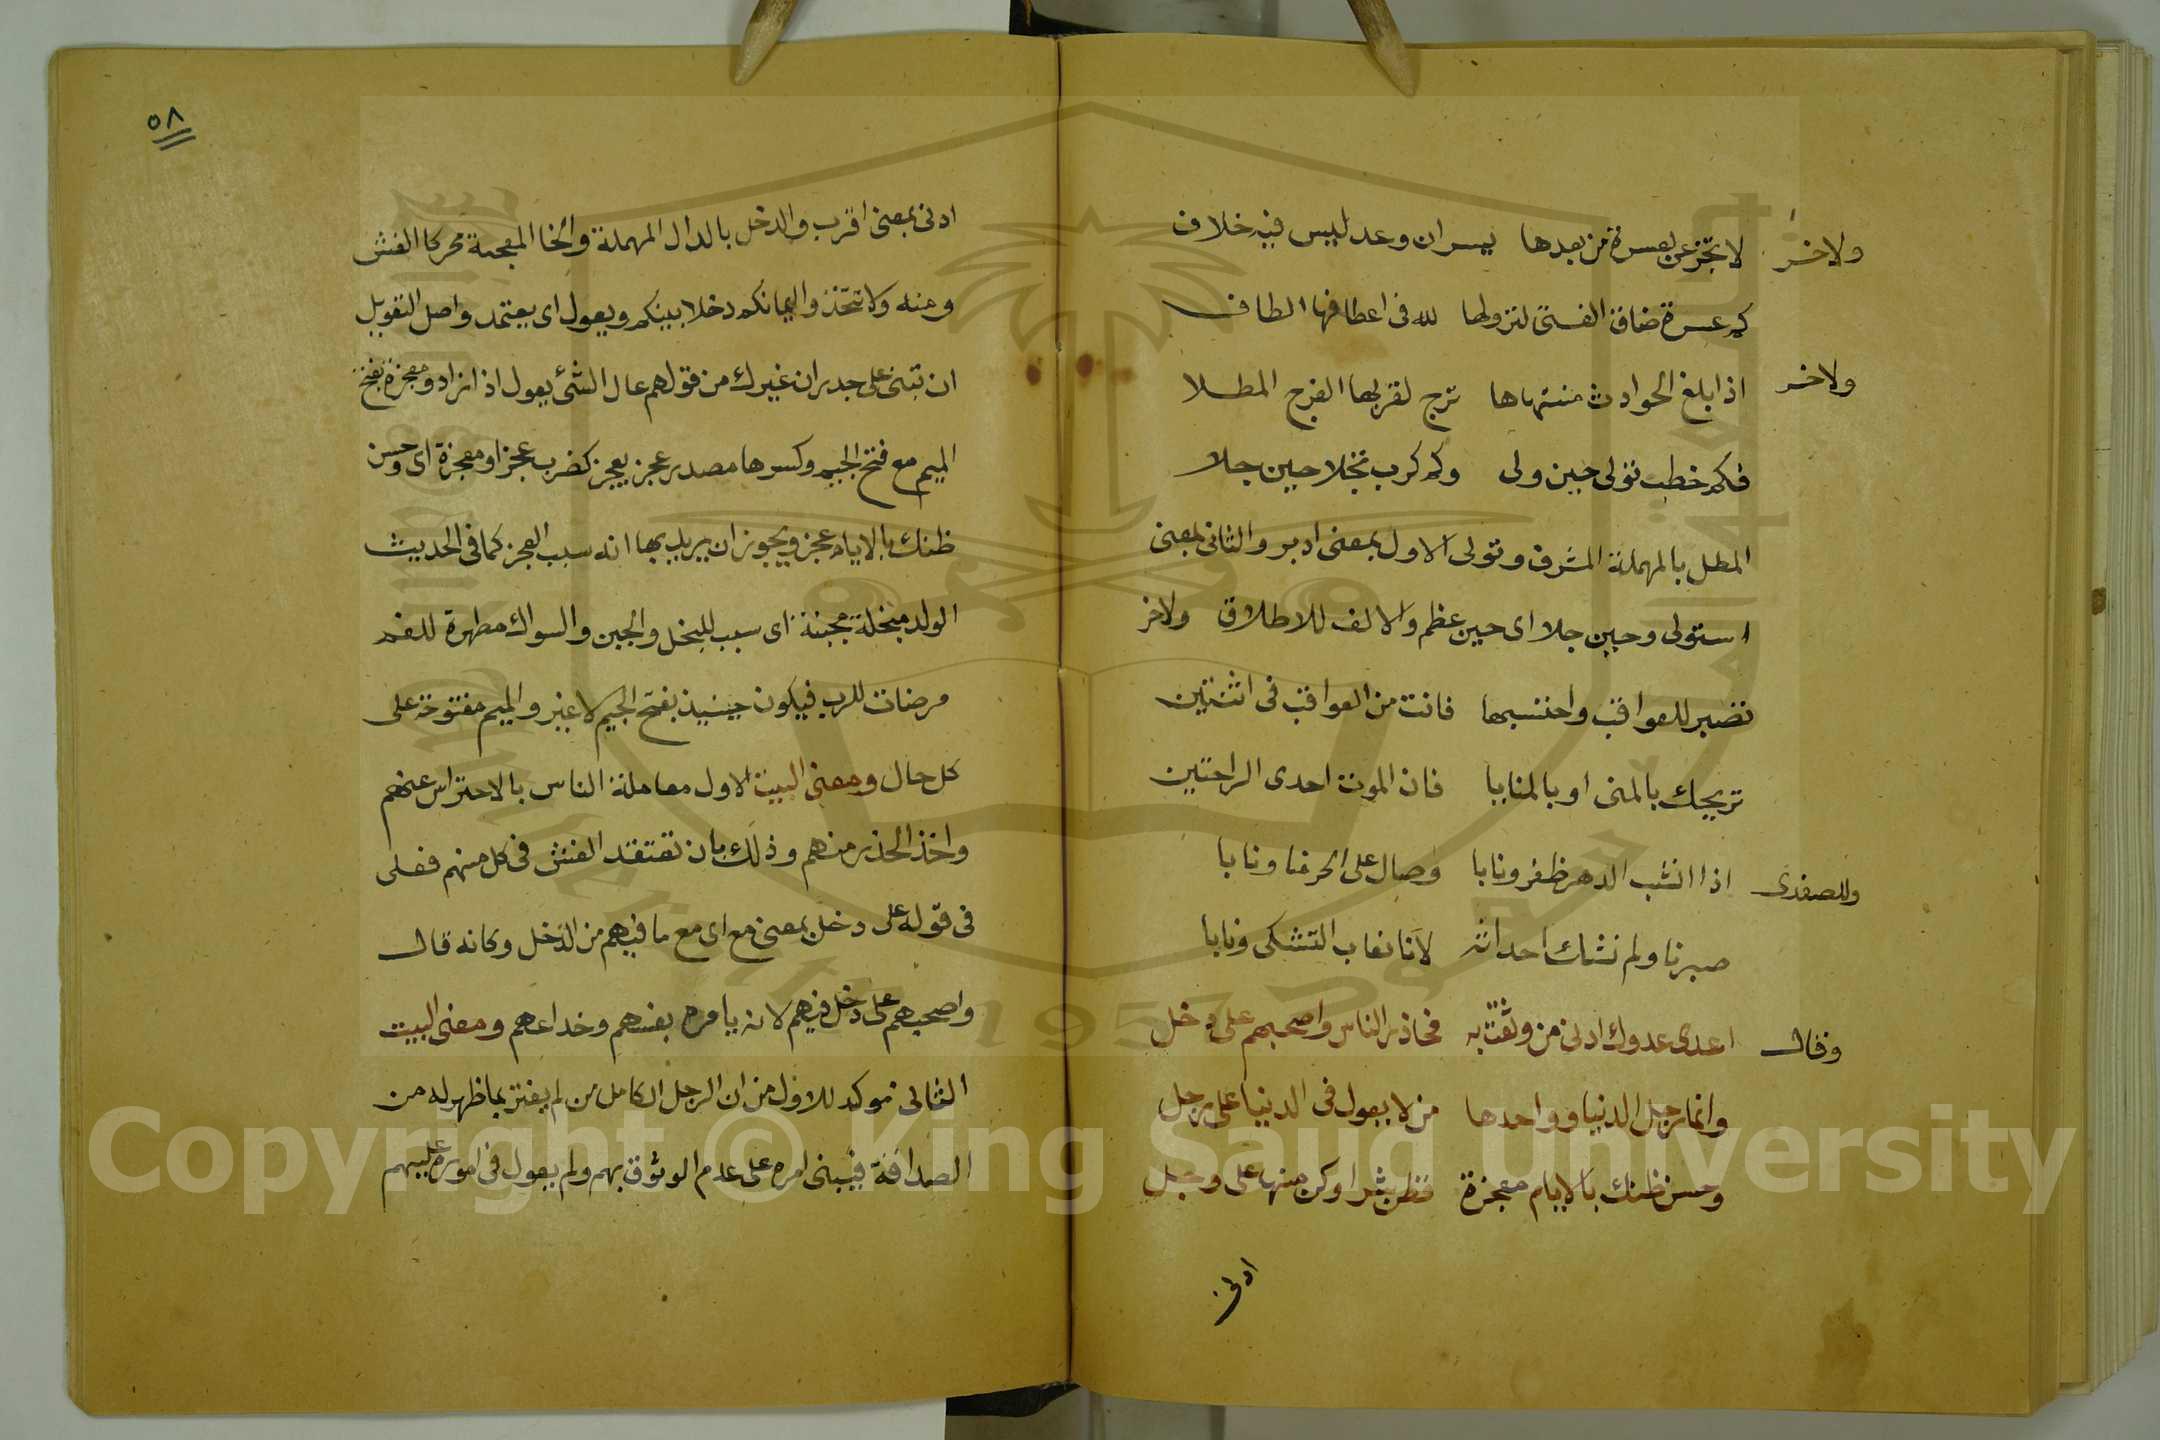 ولاخر لا تجزعن لعسرة من بعدها يسران وعد ليس فيه خلاف
كم عسرة ضاق الفتى لنزولها لله فى اعطافها الطاف
ولاخر اذا بلغ الحوادث منتهاها ترج لقربها الفرج المطلا
فكم خطب تولى حين ولى وكم كرب تجلا حين جلا
المطل بالمهملة المشرف وتولى الاول بمعنى ادبر والثانى بمعنى
استولى وحين جلا اى حين عظم والالف للاطلاق ولاخر
تصبر للعواقب واحتسبها فانت من العواقب فى اثنتين
تريحك بالمنى او بالمنايا فان الموت احدى الراحتين
وللصفدى اذا انشب الدهر ظفر ونابا وصال على الحر منا ونابا
صبرنا ولم نشك احداثه لانا نعاب التشكى ونابا
وقال اعدى عدوك ادنى من وثقت به فحاذر الناس واصحبهم على دخل
وانما رجل الدنيا وواحدها من لا يعول فى الدنيا على رجل
وحسن ظنك بالايام معجزة فظن شرا وكن منها على وجل
ادنى
٥٨
ادنى بمعنى اقرب والدخل بالدال المهملة والخا المعجمة محركا الغش
ومنه ولا تتخذوا ايمانكم دخلا بينكم ويعول اى يعتمد واصل التعويل
ان تبنى على جدران غيرك من قولهم عال الشئ يعول اذا زاد ومعجزة بفتح
الميم مع فتح الجيم وكسرها مصدر عجز يعجز كضرب عجزا ومعجزة اى وحسن
ظنك بالايام عجز ويجوز ان يريد بها انه سبب العجز كما فى الحديث
الولد مبخلة مجبنة اى سبب للبخل والجبن والسواك مطهرة للفم
مرضات للرب فيكون حينيذ بفتح الجيم لا غير والميم مفتوحة على
كل حال ومعنى البيت الاول معاملة الناس بالاحتراس عنهم
واخذ الحذر منهم وذلك بان تعتقد الغش فى كل منهم فعلى
فى قوله على دخل بمعنى مع اى مع ما فيهم من الدخل وكانه قال
واصحبهم على دخل فيهم لانه يامره بغشهم وخداعهم ومعنى البيت
الثانى موكد للاول من ان الرجل الكامل من لم يغتر بما ظهر له من
الصداقة فيبنى امره على عدم الوثوق بهم ولم يعول فى اموره عليهم
Copyright © King Saud University
1957